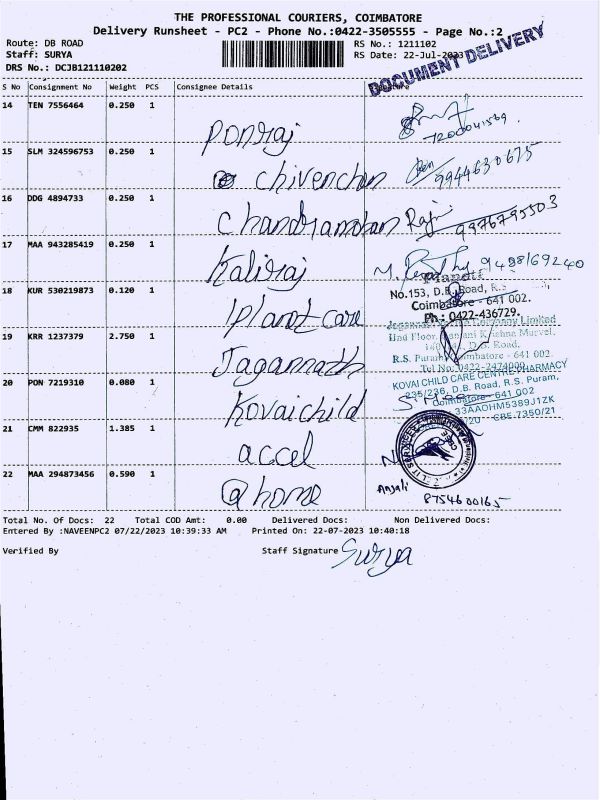 THE PROFESSIONAL COURIERS, COIMBATORE
Delivery Runsheet - PC2 - Phone No.:0422-3505555 - Page No.:2
Route: DB ROAD
Staff: SURYA
DRS No.: DCJB121110202
RS No.: 1211102
RS Date: 22-Jul-2023
DOCUMENT DELIVERY
S No Consignment No Weight PCS Consignee Details
14 TEN 7556464 0.250 1
Ponraj
7200041569
15 SLM 324596753 0.250 1
chivenchan
9944630675
16 DDG 4894733 0.250 1
Chandramohan Raji 9976795503
17 MAA 943285419 0.250 1
Kaliraj
9488169240
18 KUR 530219873 0.120 1
Planot care
No.153, D.B. Road, R.S.
Coimbatore - 641 002.
Ph : 0422-436729.
19 KRR 1237379 2.750 1
Jagannath
Limited
IInd Floor, Krishna Marvel,
D.B. Road,
R.S. Puram Coimbatore - 641 002.
Tel No. 0422-2474009
20 PON 7219310 0.080 1
Kovaichild
KOVAI CHILD CARE CENTRE PHARMACY
235/236, D.B. Road, R.S. Puram,
Coimbatore - 641 002
33AAOHM5389J1ZK
CBE.7350/21
21 CMM 822935 1.385 1
accel
22 MAA 294873456 0.590 1
@home
Anjali
8754600165
Total No. Of Docs: 22 Total COD Amt: 0.00 Delivered Docs: Non Delivered Docs:
Entered By :NAVEENPC2 07/22/2023 10:39:33 AM Printed On: 22-07-2023 10:40:18
Verified By Staff Signature Surya